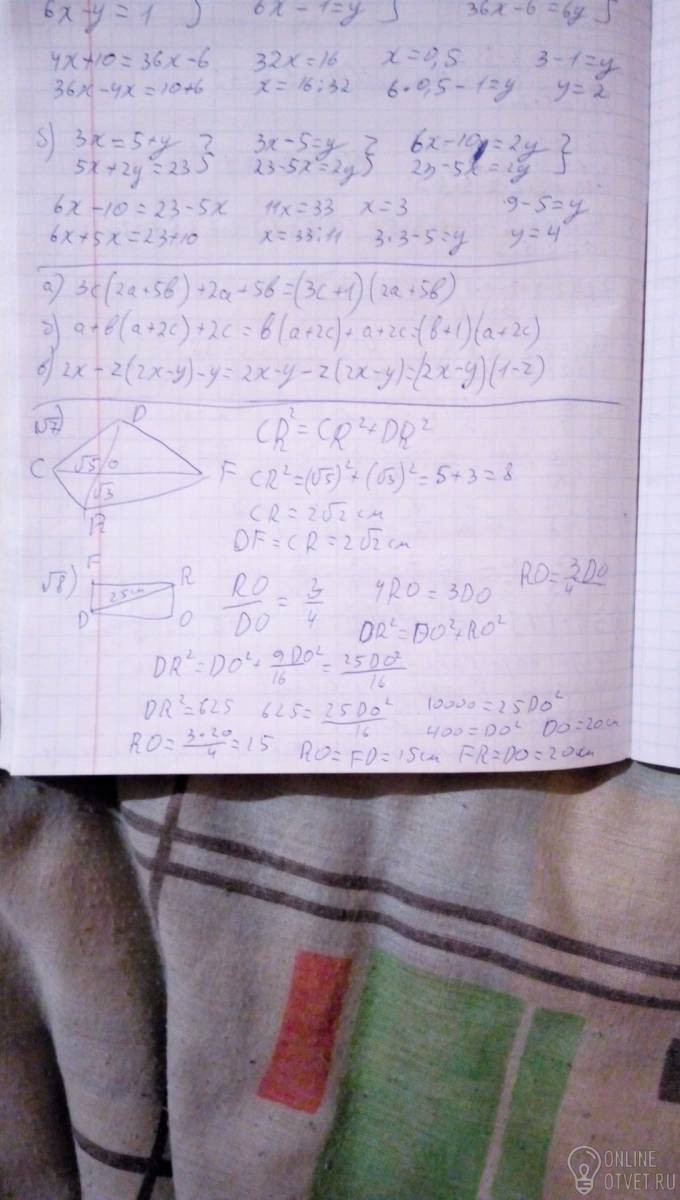 6x-y=1} 6x-1=y} 36x-6=6y}
4x+10=36x-6 32x=16 x=0,5 3-1=y
36x-4x=10+6 x=16:32 6·0,5-1=y y=2
б) 3x=5+y} 3x-5=y} 6x-10=2y}
5x+2y=23} 23-5x=2y} 23-5x=2y}
6x-10=23-5x 11x=33 x=3 9-5=y
6x+5x=23+10 x=33:11 3·3-5=y y=4
а) 3c(2a+5b)+2a+5b=(3c+1)(2a+5b)
б) a+b(a+2c)+2c=b(a+2c)+a+2c=(b+1)(a+2c)
в) 2x-z(2x-y)-y=2x-y-z(2x-y)=(2x-y)(1-z)
√7) D CR²=CR²+DR²
C √5 O F CR²=(√5)²+(√3)²=5+3=8
√3 CR=2√2 см
R DF=CR=2√2 см
√8) F R 25см D O
RO/DO=3/4 4RO=3DO RO=3DO/4
DR²=DO²+RO²
DR²=DO²+9DO²/16=25DO²/16
DR²=625 625=25DO²/16 10000=25DO²
RO=3·20/4=15 400=DO² DO=20см
RO=FD=15см FR=DO=20см
ONLINE
OTVET.RU